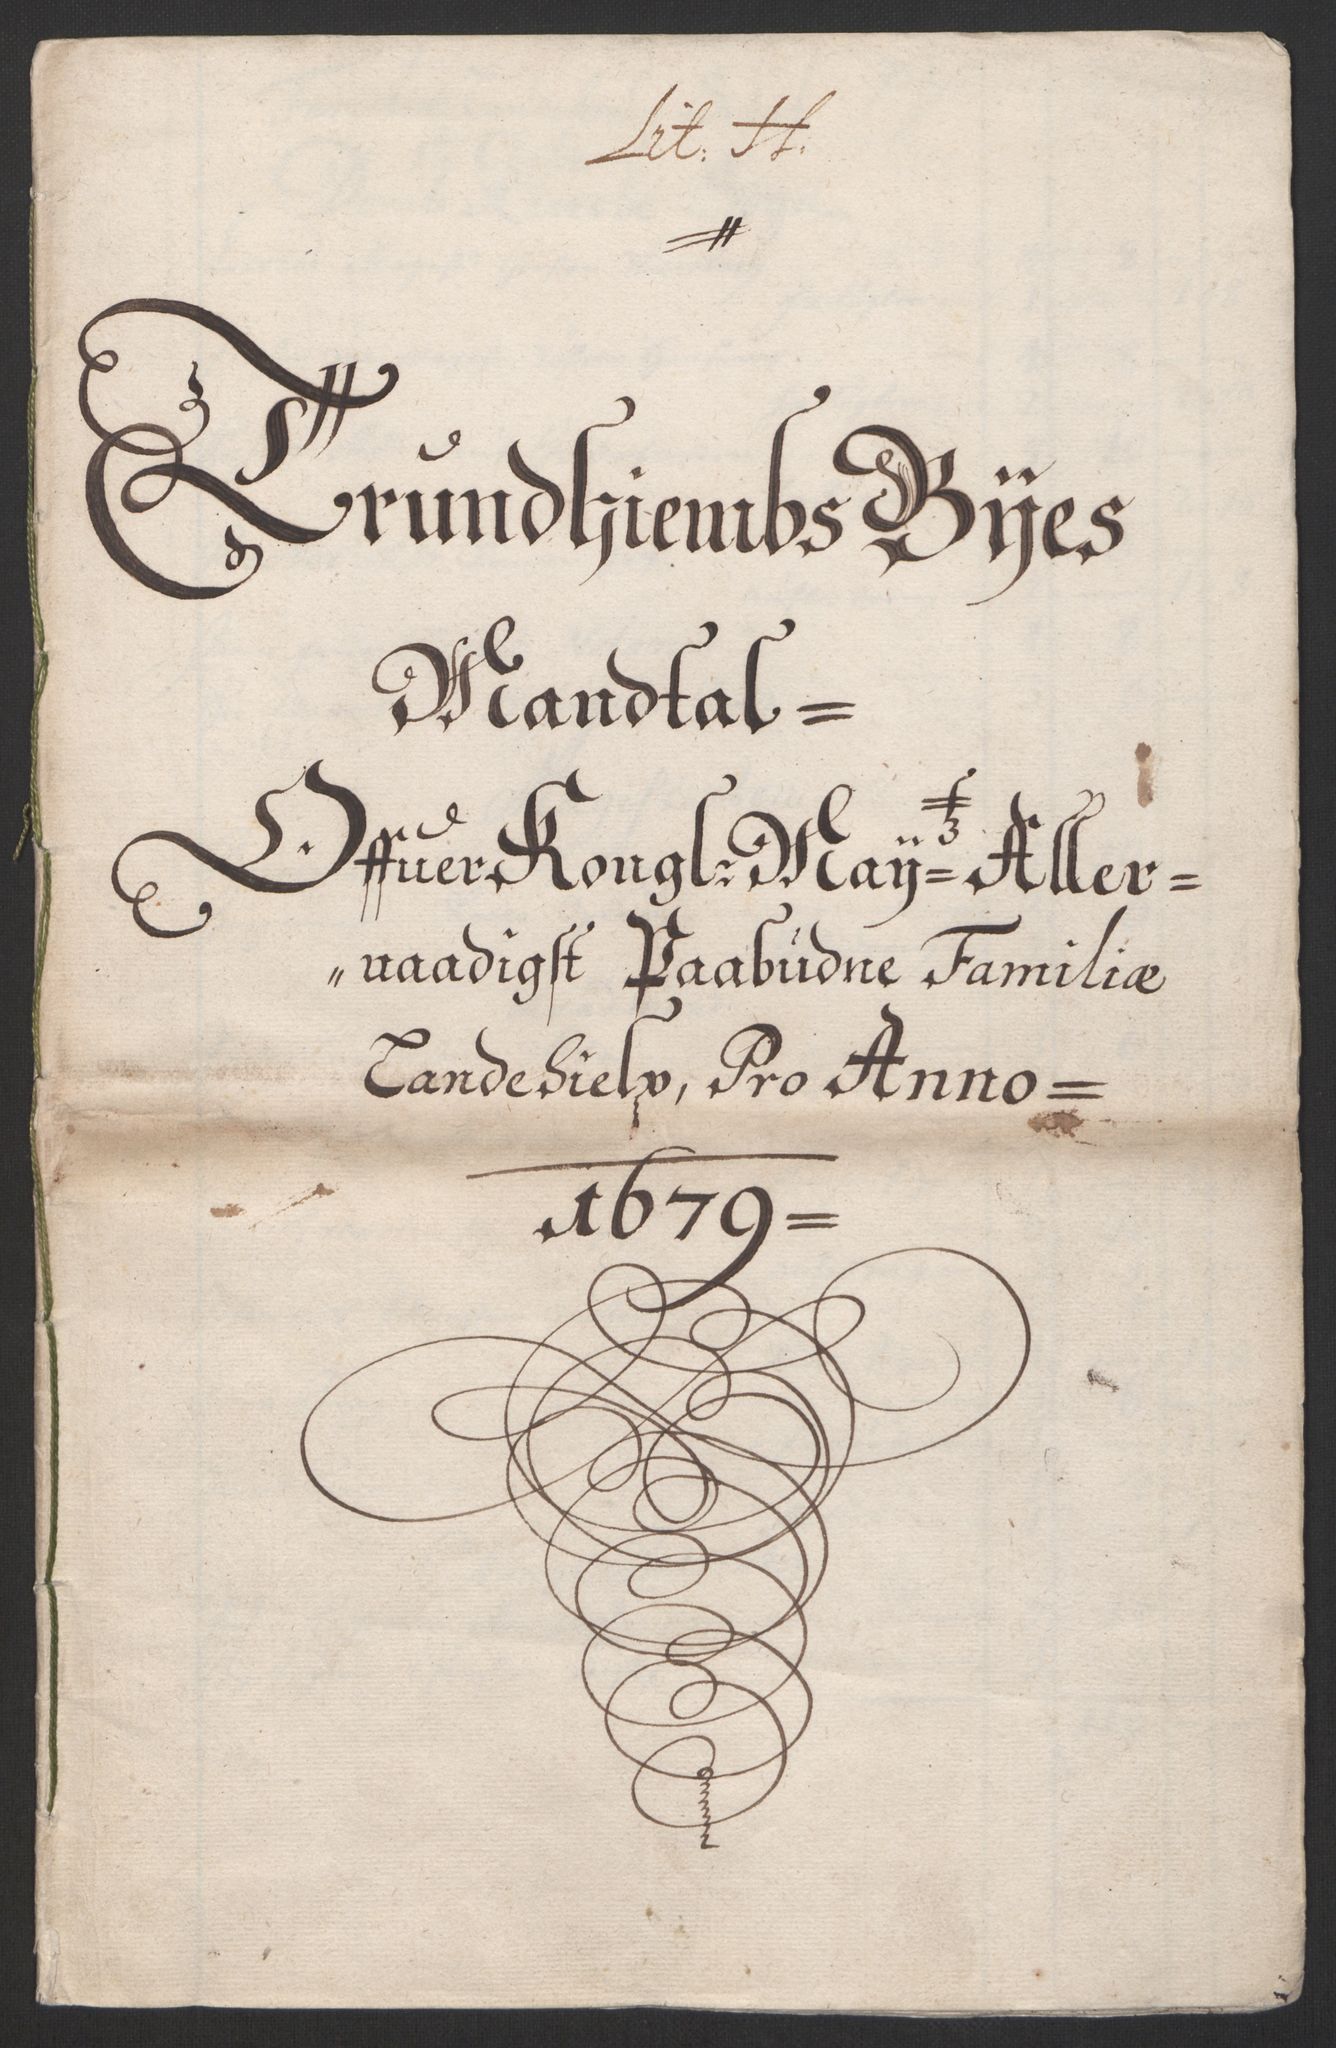 Lit. H.
Trundhiembs Bÿes
Mandtal=
Offuer Kongl: Maÿ=tz Aller=
"naadigst Paabudne Familiæ
Landehielp, Pro Anno=
1679=